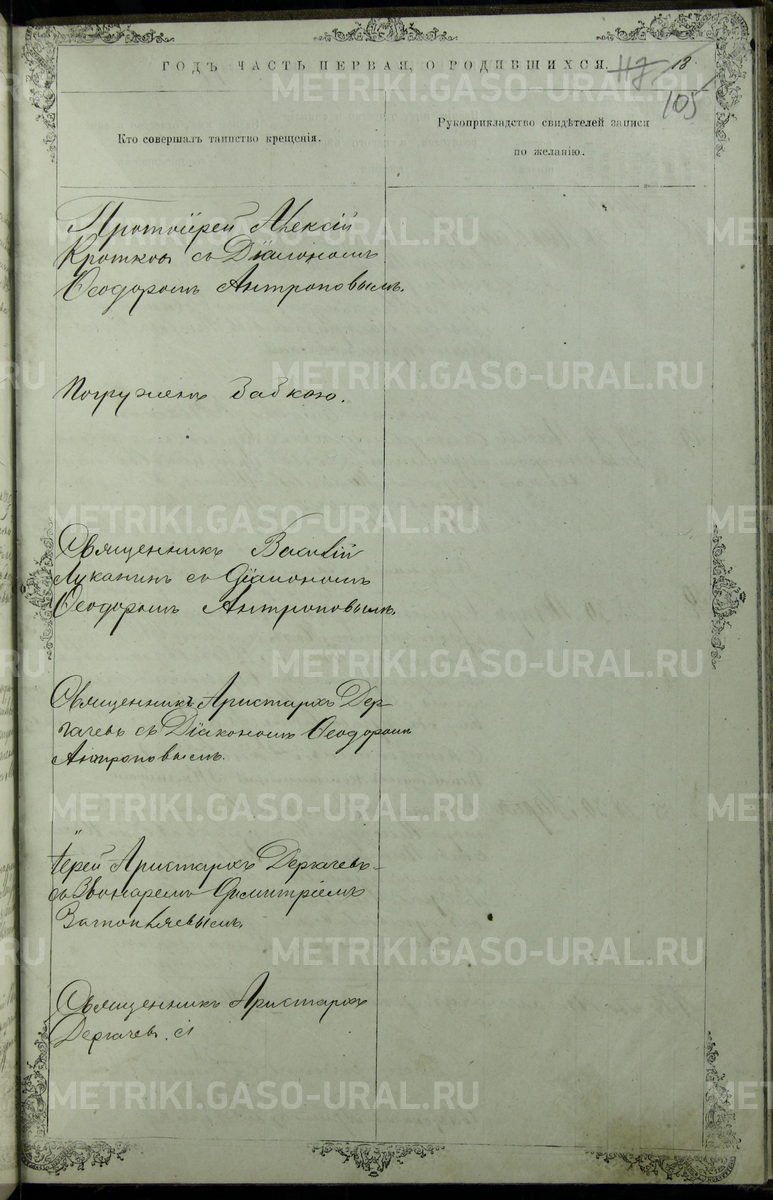 ГОДЪ ЧАСТЬ ПЕРВАЯ, О РОДИВШИХСЯ.
117 18
105
Кто совершалъ таинство крещенія.
Рукоприкладство свидѣтелей записи
по желанію.
Протоіерей Алексій
Кротковъ съ Діакономъ
Ѳеодоромъ Антроповымъ.
Погруженъ бабкою.
Священникъ Василій
Луканинъ съ Діакономъ
Ѳеодоромъ Антроповымъ.
Священникъ Аристархъ Дер-
гачевъ съ Діакономъ Ѳеодоромъ
Антроповымъ.
Іерей Аристархъ Дергачевъ
съ Звонаремъ Димитріемъ
Священникъ Аристархъ
Дергачевъ.
METRIKI.GASO-URAL.RU